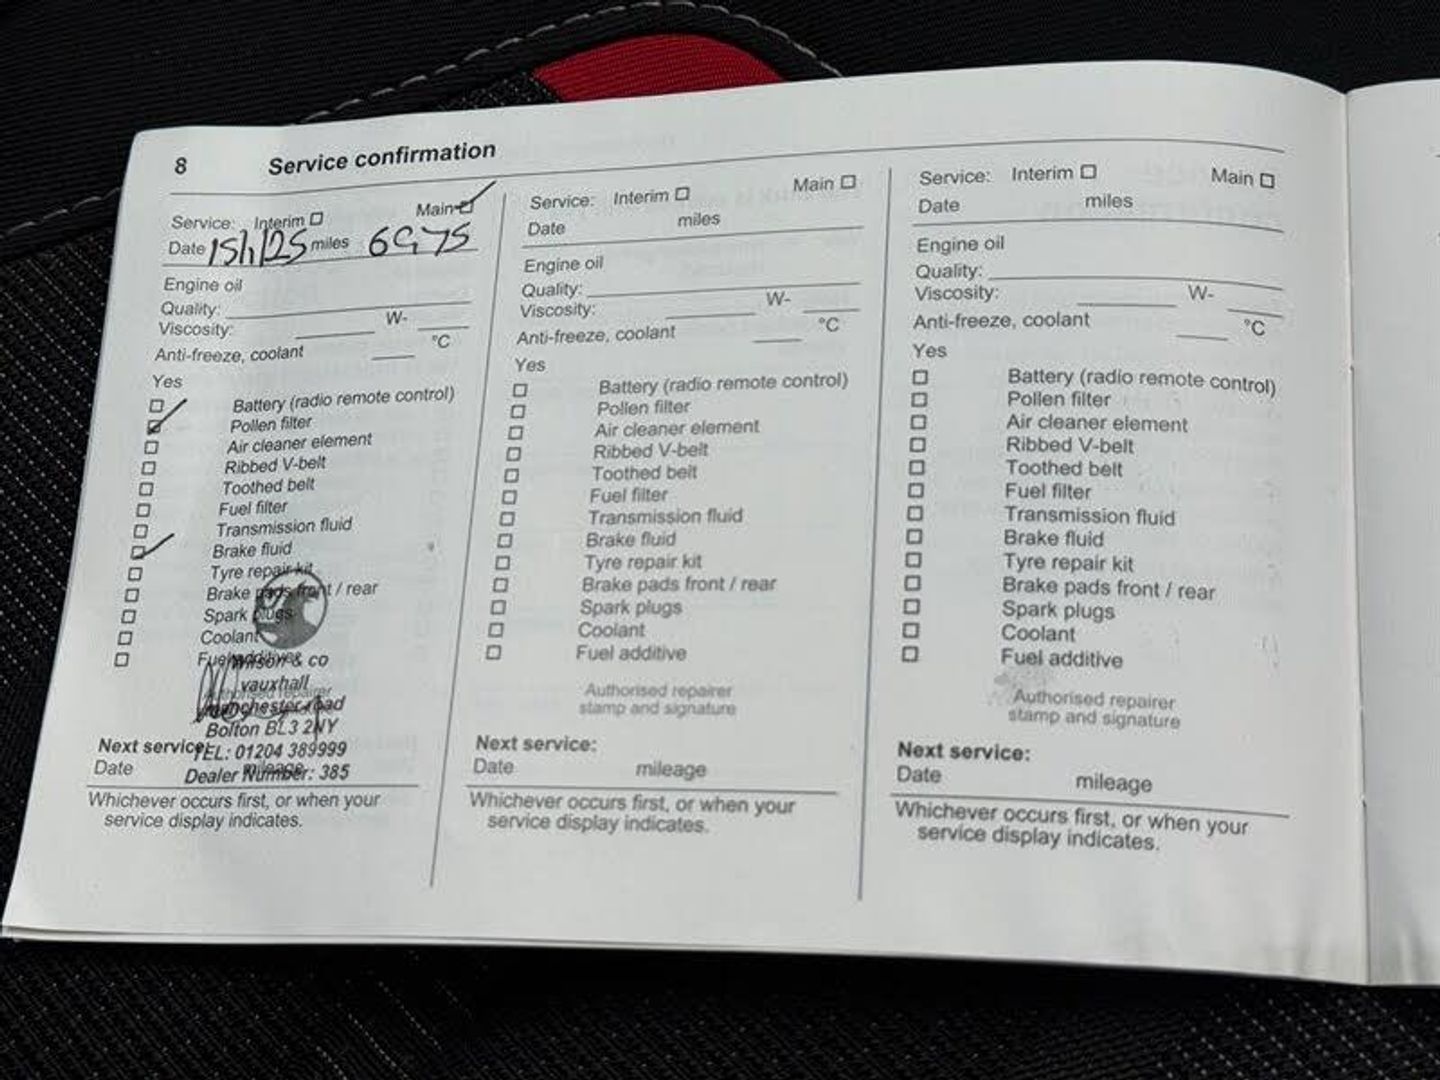 8 Service confirmation
Service: Interim Main
Date 15/1/25 miles 6975
Engine oil
Quality:
Viscosity: W-
Anti-freeze, coolant °C
Yes
Battery (radio remote control)
Pollen filter
Air cleaner element
Ribbed V-belt
Toothed belt
Fuel filter
Transmission fluid
Brake fluid
Tyre repair kit
Brake pads front / rear
Spark plugs
Coolant
Fuel additive
Wilson & co
Authorised repairer
vauxhall
manchester road
Bolton BL3 2NY
Next service:
TEL: 01204 389999
Date mileage
Dealer Number: 385
Whichever occurs first, or when your
service display indicates.
Service: Interim Main
Date miles
Engine oil
Quality:
Viscosity: W-
Anti-freeze, coolant °C
Yes
Battery (radio remote control)
Pollen filter
Air cleaner element
Ribbed V-belt
Toothed belt
Fuel filter
Transmission fluid
Brake fluid
Tyre repair kit
Brake pads front / rear
Spark plugs
Coolant
Fuel additive
Authorised repairer
stamp and signature
Next service:
Date mileage
Whichever occurs first, or when your
service display indicates.
Service: Interim Main
Date miles
Engine oil
Quality:
Viscosity: W-
Anti-freeze, coolant °C
Yes
Battery (radio remote control)
Pollen filter
Air cleaner element
Ribbed V-belt
Toothed belt
Fuel filter
Transmission fluid
Brake fluid
Tyre repair kit
Brake pads front / rear
Spark plugs
Coolant
Fuel additive
Authorised repairer
stamp and signature
Next service:
Date mileage
Whichever occurs first, or when your
service display indicates.